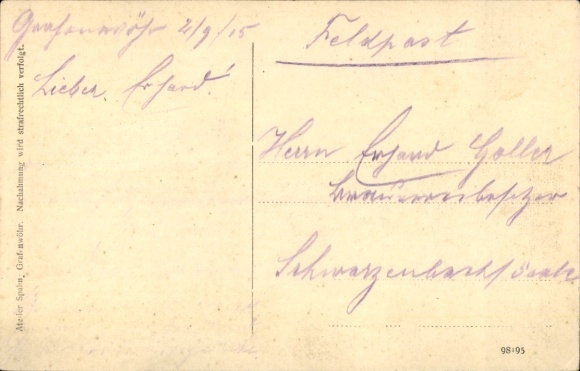 Grafenwöhr 2/9/15
Lieber Erhard!
Feldpost
Herrn Erhard Goller
Brauereibesitzer
Schwarzenbach/Saale
Atelier Spahn, Grafenwöhr. Nachahmung wird strafrechtlich verfolgt.
98195